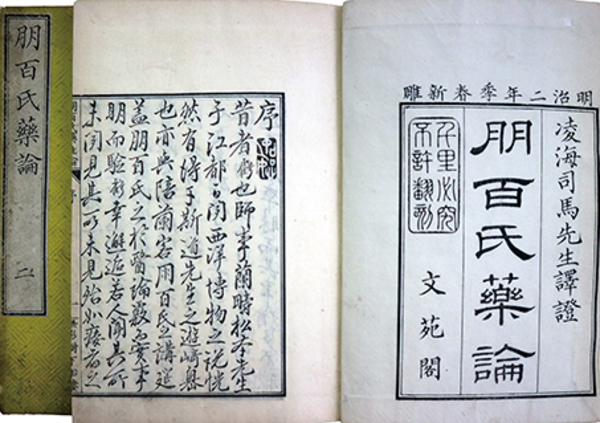 明治二年季春新雕
凌海司馬先生譯證
朋百氏藥論
千里必究
不許翻刻
文苑閣
序
昔者 也師事蘭疇松本先生
于江都日聞西洋博物之說恍
然有得于斯道先生之遊崎縣
也亦與陪焉 朋百氏之講 
蓋朋百氏之於醫論 實事
明而驗 幸邂逅若人聞其所
未聞見其所未見殆 者之
朋百氏藥論
二